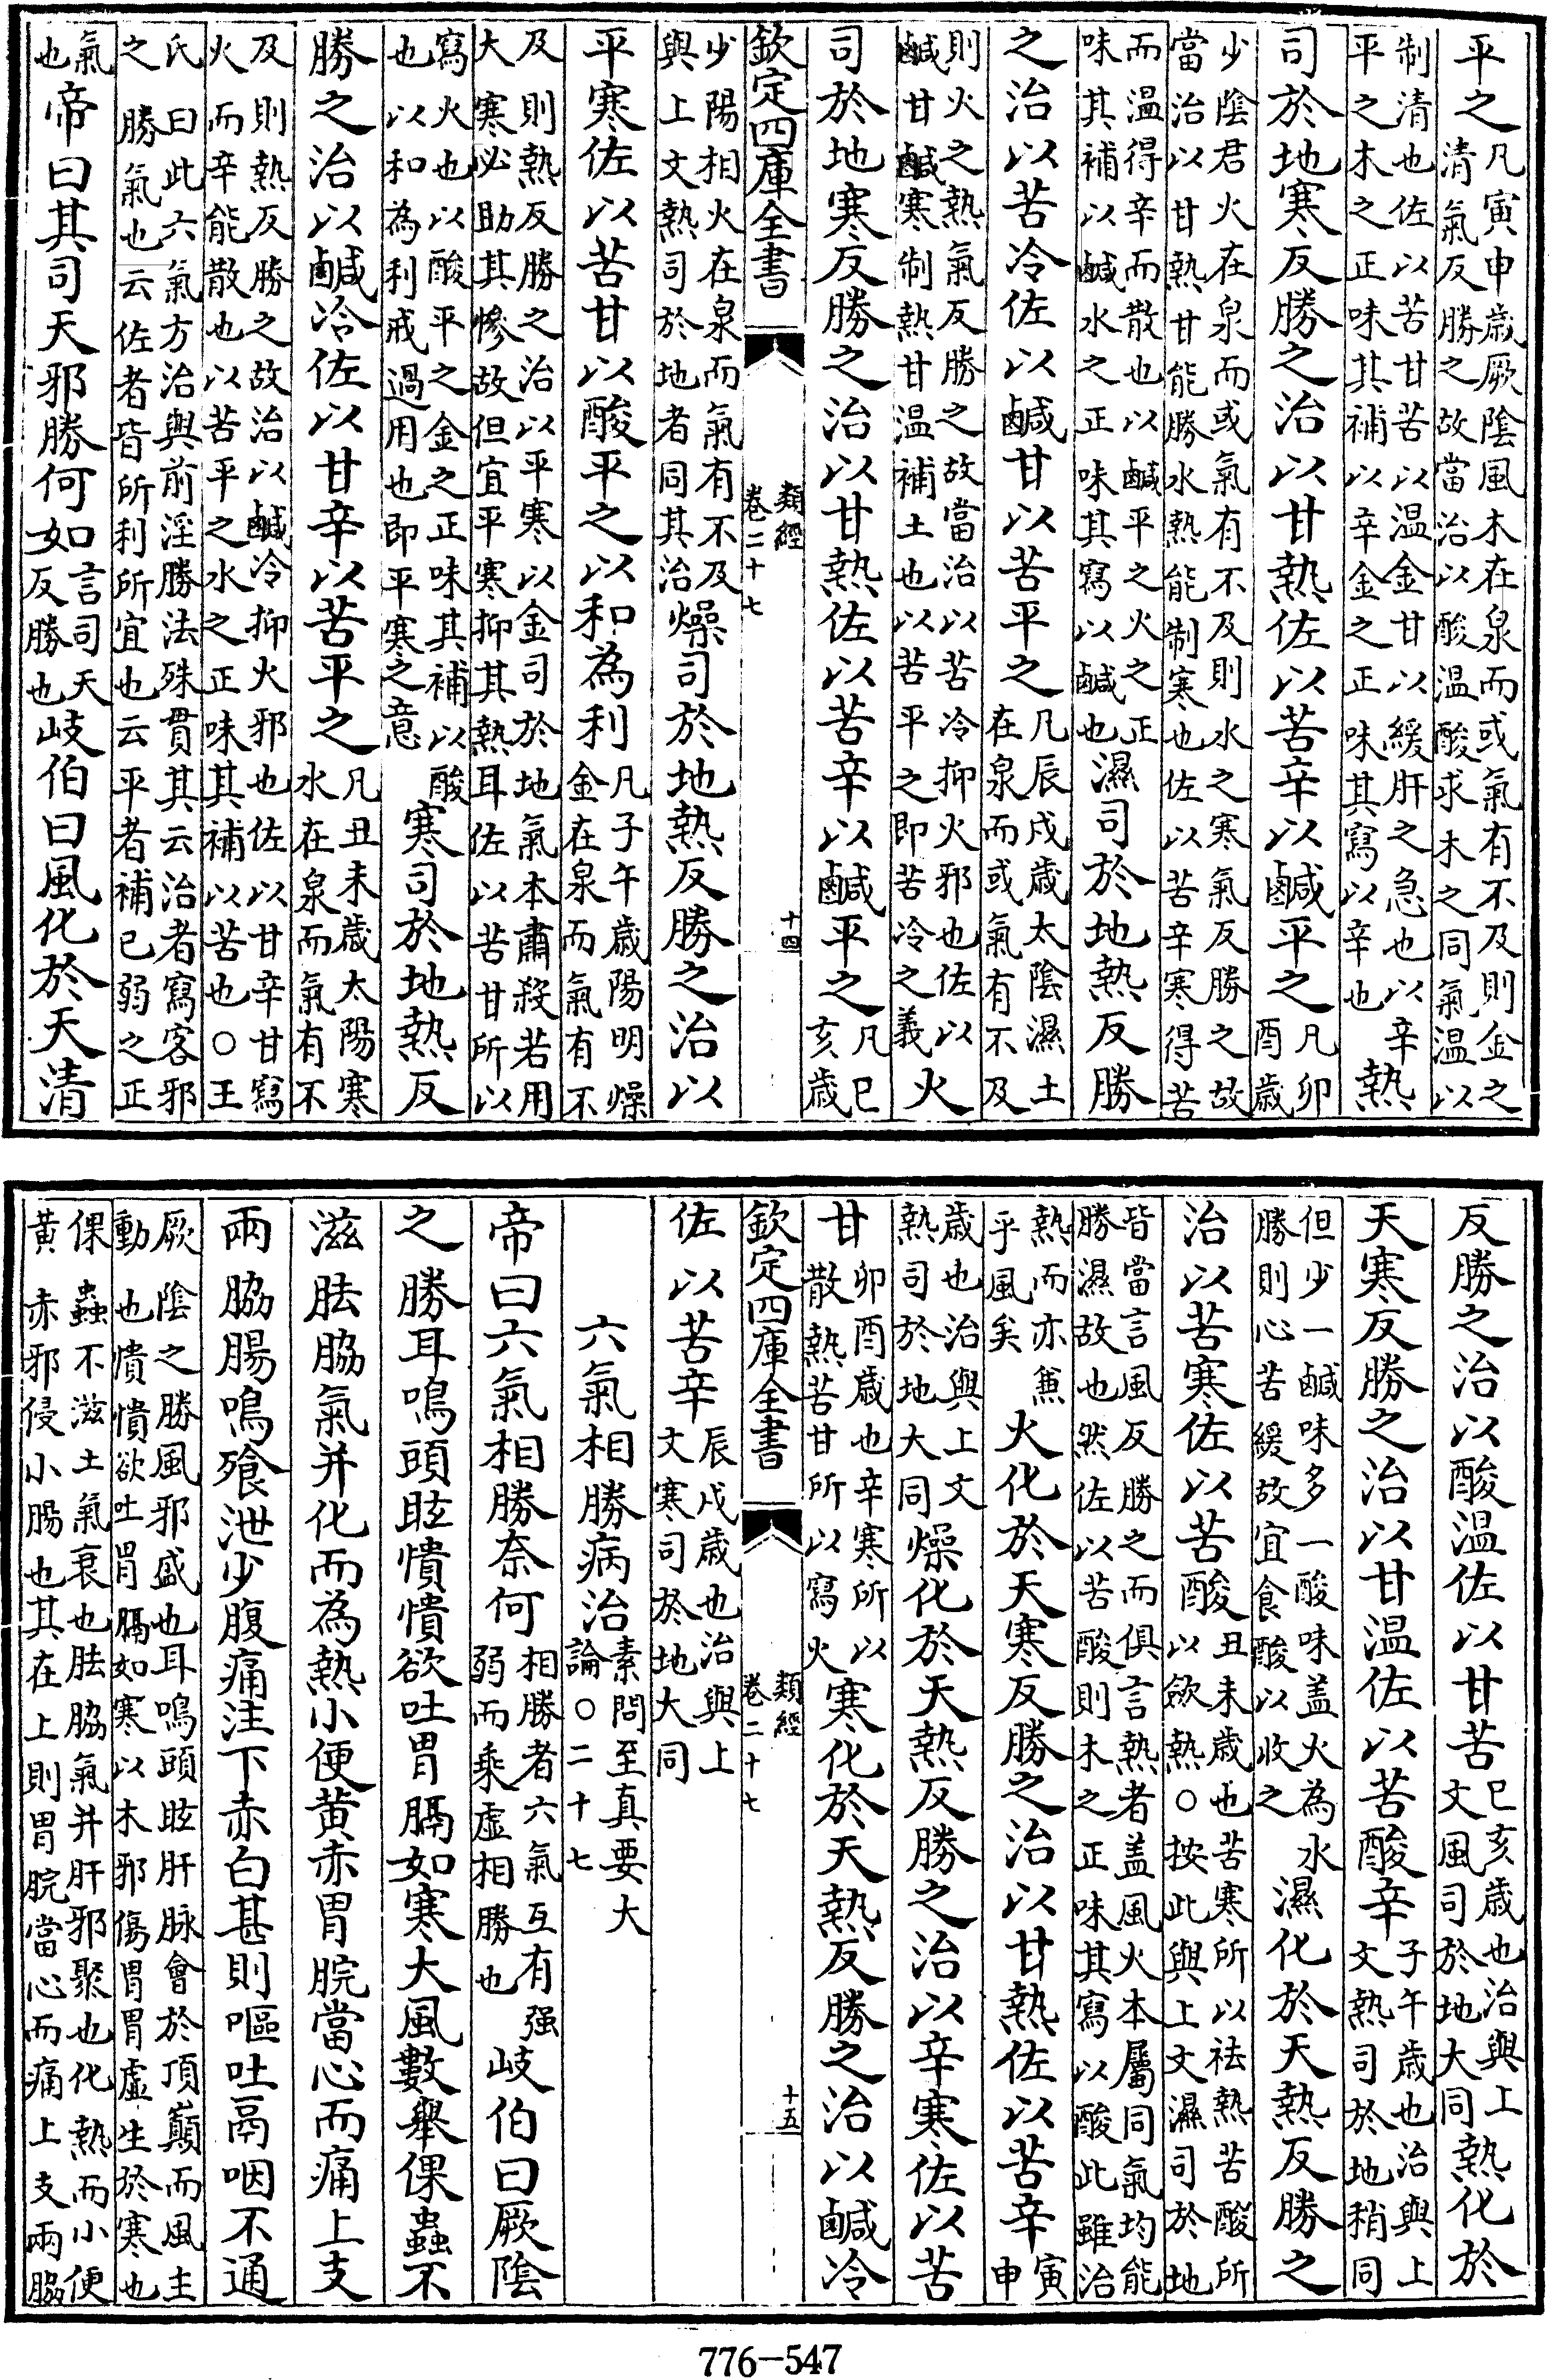 平之凡寅申歲厥陰風木在泉而或氣有不及則金之清氣反勝之故當治以酸温酸求木之同氣温以
制清也佐以苦甘苦以温金甘以緩肝之急也以辛平之木之正味其補以辛金之正味其寫以辛也熱
司於地寒反勝之治以甘熱佐以苦辛以鹹平之凡卯酉歲
少陰君火在泉而或氣有不及則水之寒氣反勝之故當治以甘熱甘能勝水熱能制寒也佐以苦辛寒得苦
而温得辛而散也以鹹平之火之正味其補以鹹水之正味其寫以鹹也濕司於地熱反勝
之治以苦冷佐以鹹甘以苦平之凡辰戌歲太陰濕土在泉而或氣有不及
則火之熱氣反勝之故當治以苦冷抑火邪也佐以鹹甘鹹寒制熱甘温補土也以苦平之即苦冷之義火
司於地寒反勝之治以甘熱佐以苦辛以鹹平之凡巳亥歲
欽定四庫全書 類經 卷二十七 十四
少陽相火在泉而氣有不及與上文熱司於地者同其治燥司於地熱反勝之治以
平寒佐以苦甘以酸平之以和為利凡子午歲陽明燥金在泉而氣有不
及則熱反勝之治以平寒以金司於地氣本肅殺若用大寒必助其慘故但宜平寒抑其熱耳佐以苦甘所以
寫火也以酸平之金之正味其補以酸也以和為利戒過用也即平寒之意寒司於地熱反
勝之治以鹹冷佐以甘辛以苦平之凡丑未歲太陽寒水在泉而氣有不
及則熱反勝之故治以鹹冷抑火邪也佐以甘辛甘寫火而辛能散也以苦平之水之正味其補以苦也○王
氏曰此六氣方治與前淫勝法殊貫其云治者寫客邪之勝氣也云佐者皆所利所宜也云平者補已弱之正
氣也帝曰其司天邪勝何如言司天反勝也岐伯曰風化於天清
反勝之治以酸温佐以甘苦巳亥歲也治與上文風司於地大同熱化於
天寒反勝之治以甘温佐以苦酸辛子午歲也治與上文熱司於地稍同
但少一鹹味多一酸味盖火為水勝則心苦緩故宜食酸以收之濕化於天熱反勝之
治以苦寒佐以苦酸丑未歲也苦寒所以祛熱苦酸所以斂熱○按此與上文濕司於地
皆當言風反勝之而俱言熱者盖風火本屬同氣均能勝濕故也然佐以苦酸則木之正味其寫以酸此雖治
熱而亦兼乎風矣火化於天寒反勝之治以甘熱佐以苦辛寅申
歲也治與上文熱司於地大同燥化於天熱反勝之治以辛寒佐以苦
甘卯酉歲也辛寒所以散熱苦甘所以寫火寒化於天熱反勝之治以鹹冷
欽定四庫全書 類經 卷二十七 十五
佐以苦辛辰戌歲也治與上文寒司於地大同
六氣相勝病治素問至真要大論○二十七
帝曰六氣相勝奈何相勝者六氣互有强弱而乘虚相勝也岐伯曰厥陰
之勝耳鳴頭眩憒憒欲吐胃膈如寒大風數舉倮蟲不
滋胠脇氣并化而為熱小便黄赤胃脘當心而痛上支
兩脇腸鳴飱泄少腹痛注下赤白甚則嘔吐鬲咽不通
厥陰之勝風邪盛也耳鳴頭眩肝脉會於頂巔而風主動也憒憒欲吐胃膈如寒以木邪傷胃胃虚生於寒也
倮蟲不滋土氣衰也胠脇氣并肝邪聚也化熱而小便黄赤邪侵小腸也其在上則胃脘當心而痛上支兩脇
776-547